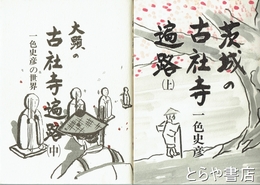 茨城の
古社寺
遍路(上)
一色史彦
大顕の
古社寺遍路(中)
一色史彦の世界
とらや書店